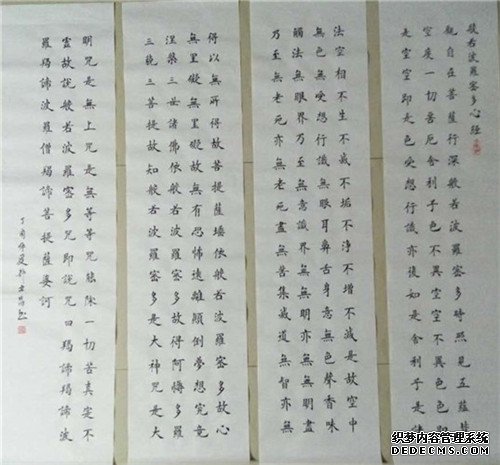 般若波羅密多心經
觀自在菩薩行深般若波羅密多時照見五蘊皆
空度一切苦厄舍利子色不異空空不異色色即
是空空即是色受想行識亦復如是舍利子是諸
法空相不生不滅不垢不淨不增不減是故空中
無色無受想行識無眼耳鼻舌身意無色聲香味
觸法無眼界乃至無意識界無無明亦無無明盡
乃至無老死亦無老死盡無苦集滅道無智亦無
得以無所得故菩提薩埵依般若波羅密多故心
無罣礙無罣礙故無有恐怖遠離顛倒夢想究竟
涅槃三世諸佛依般若波羅密多故得阿耨多羅
三藐三菩提故知般若波羅密多是大神咒是大
明咒是無上咒是無等等咒能除一切苦真実不
虛故說般若波羅密多咒即說咒曰羯諦羯諦波
羅羯諦波羅僧羯諦菩提薩婆訶
丁酉仲夏
织梦内容管理系统
DEDECMS.COM